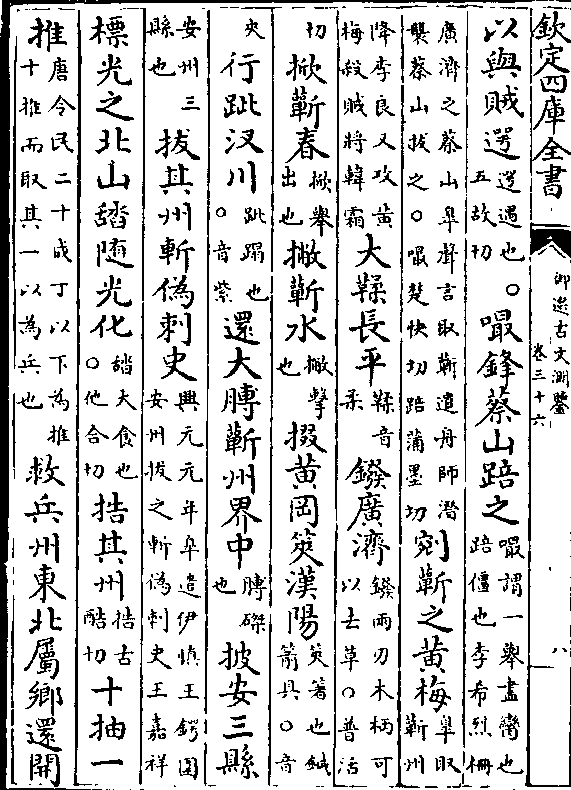 欽定四庫全書
御選古文淵鑒
卷三十六
八
以與賊遻遻遇也。五故切嘬鋒蔡山踣之嘬謂一舉盡臠也踣僵也李希烈柵
廣濟之蔡山臯聲言取蘄遣舟師潛襲蔡山拔之。嘬楚快切踣蒲墨切剜蘄之黃梅臯取蘄州
降李良又攻黃梅殺賊將韓霜大鞣長平鞣音柔鏺廣濟鏺兩刃木柄可以去草。普活
切掀蘄春掀舉出也撇蘄水撇擊也掇黃岡筴漢陽筴箸也鍼箭具。音
夾行跐汊川跐蹋也。音紫還大膊蘄州界中膊磔也披安三縣
安州三縣也拔其州斬偽刺史興元元年臯遣伊慎王鍔圍安州拔之斬偽刺史王嘉祥
標光之北山𦧟隨光化𦧟大食也。他合切捁其州捁古酷切十抽一
推唐令民二十成丁以下為推十推而取其一以為兵也救兵州東北屬鄉還開